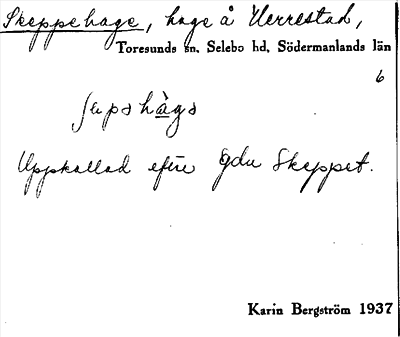 Skeppehage, hage å Herrestad,
Toresunds sn, Selebo hd, Södermanlands län
6
Uppkallad efter gdn Skeppet.
Karin Bergström 1937